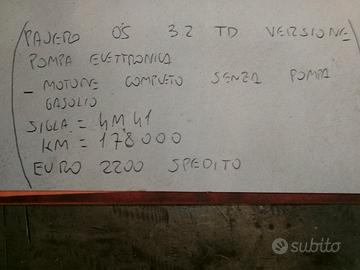 PAJERO 05 3.2 TD VERSIONE
POMPA ELETTRONICA
- MOTORE COMPLETO SENZA POMPA
GASOLIO
SIGLA = 4M41
KM = 178000
EURO 2200 SPEDITO
subito